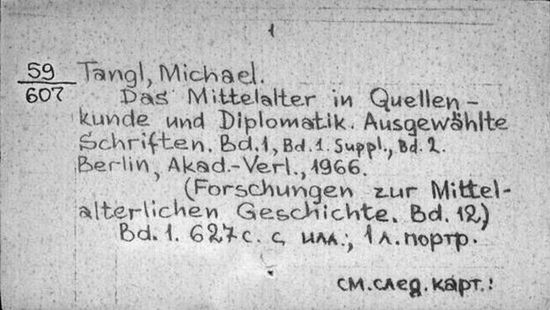 1
59 Tangl, Michael.
607 Das Mittelalter in Quellen-
kunde und Diplomatik. Ausgewählte
Schriften. Bd.1, Bd.1. Suppl., Bd.2.
Berlin, Akad.-Verl., 1966.
(Forschungen zur Mittel-
alterlichen Geschichte. Bd. 12)
Bd.1. 627 с. с илл.; 1 л. портр.
см. след. карт.!